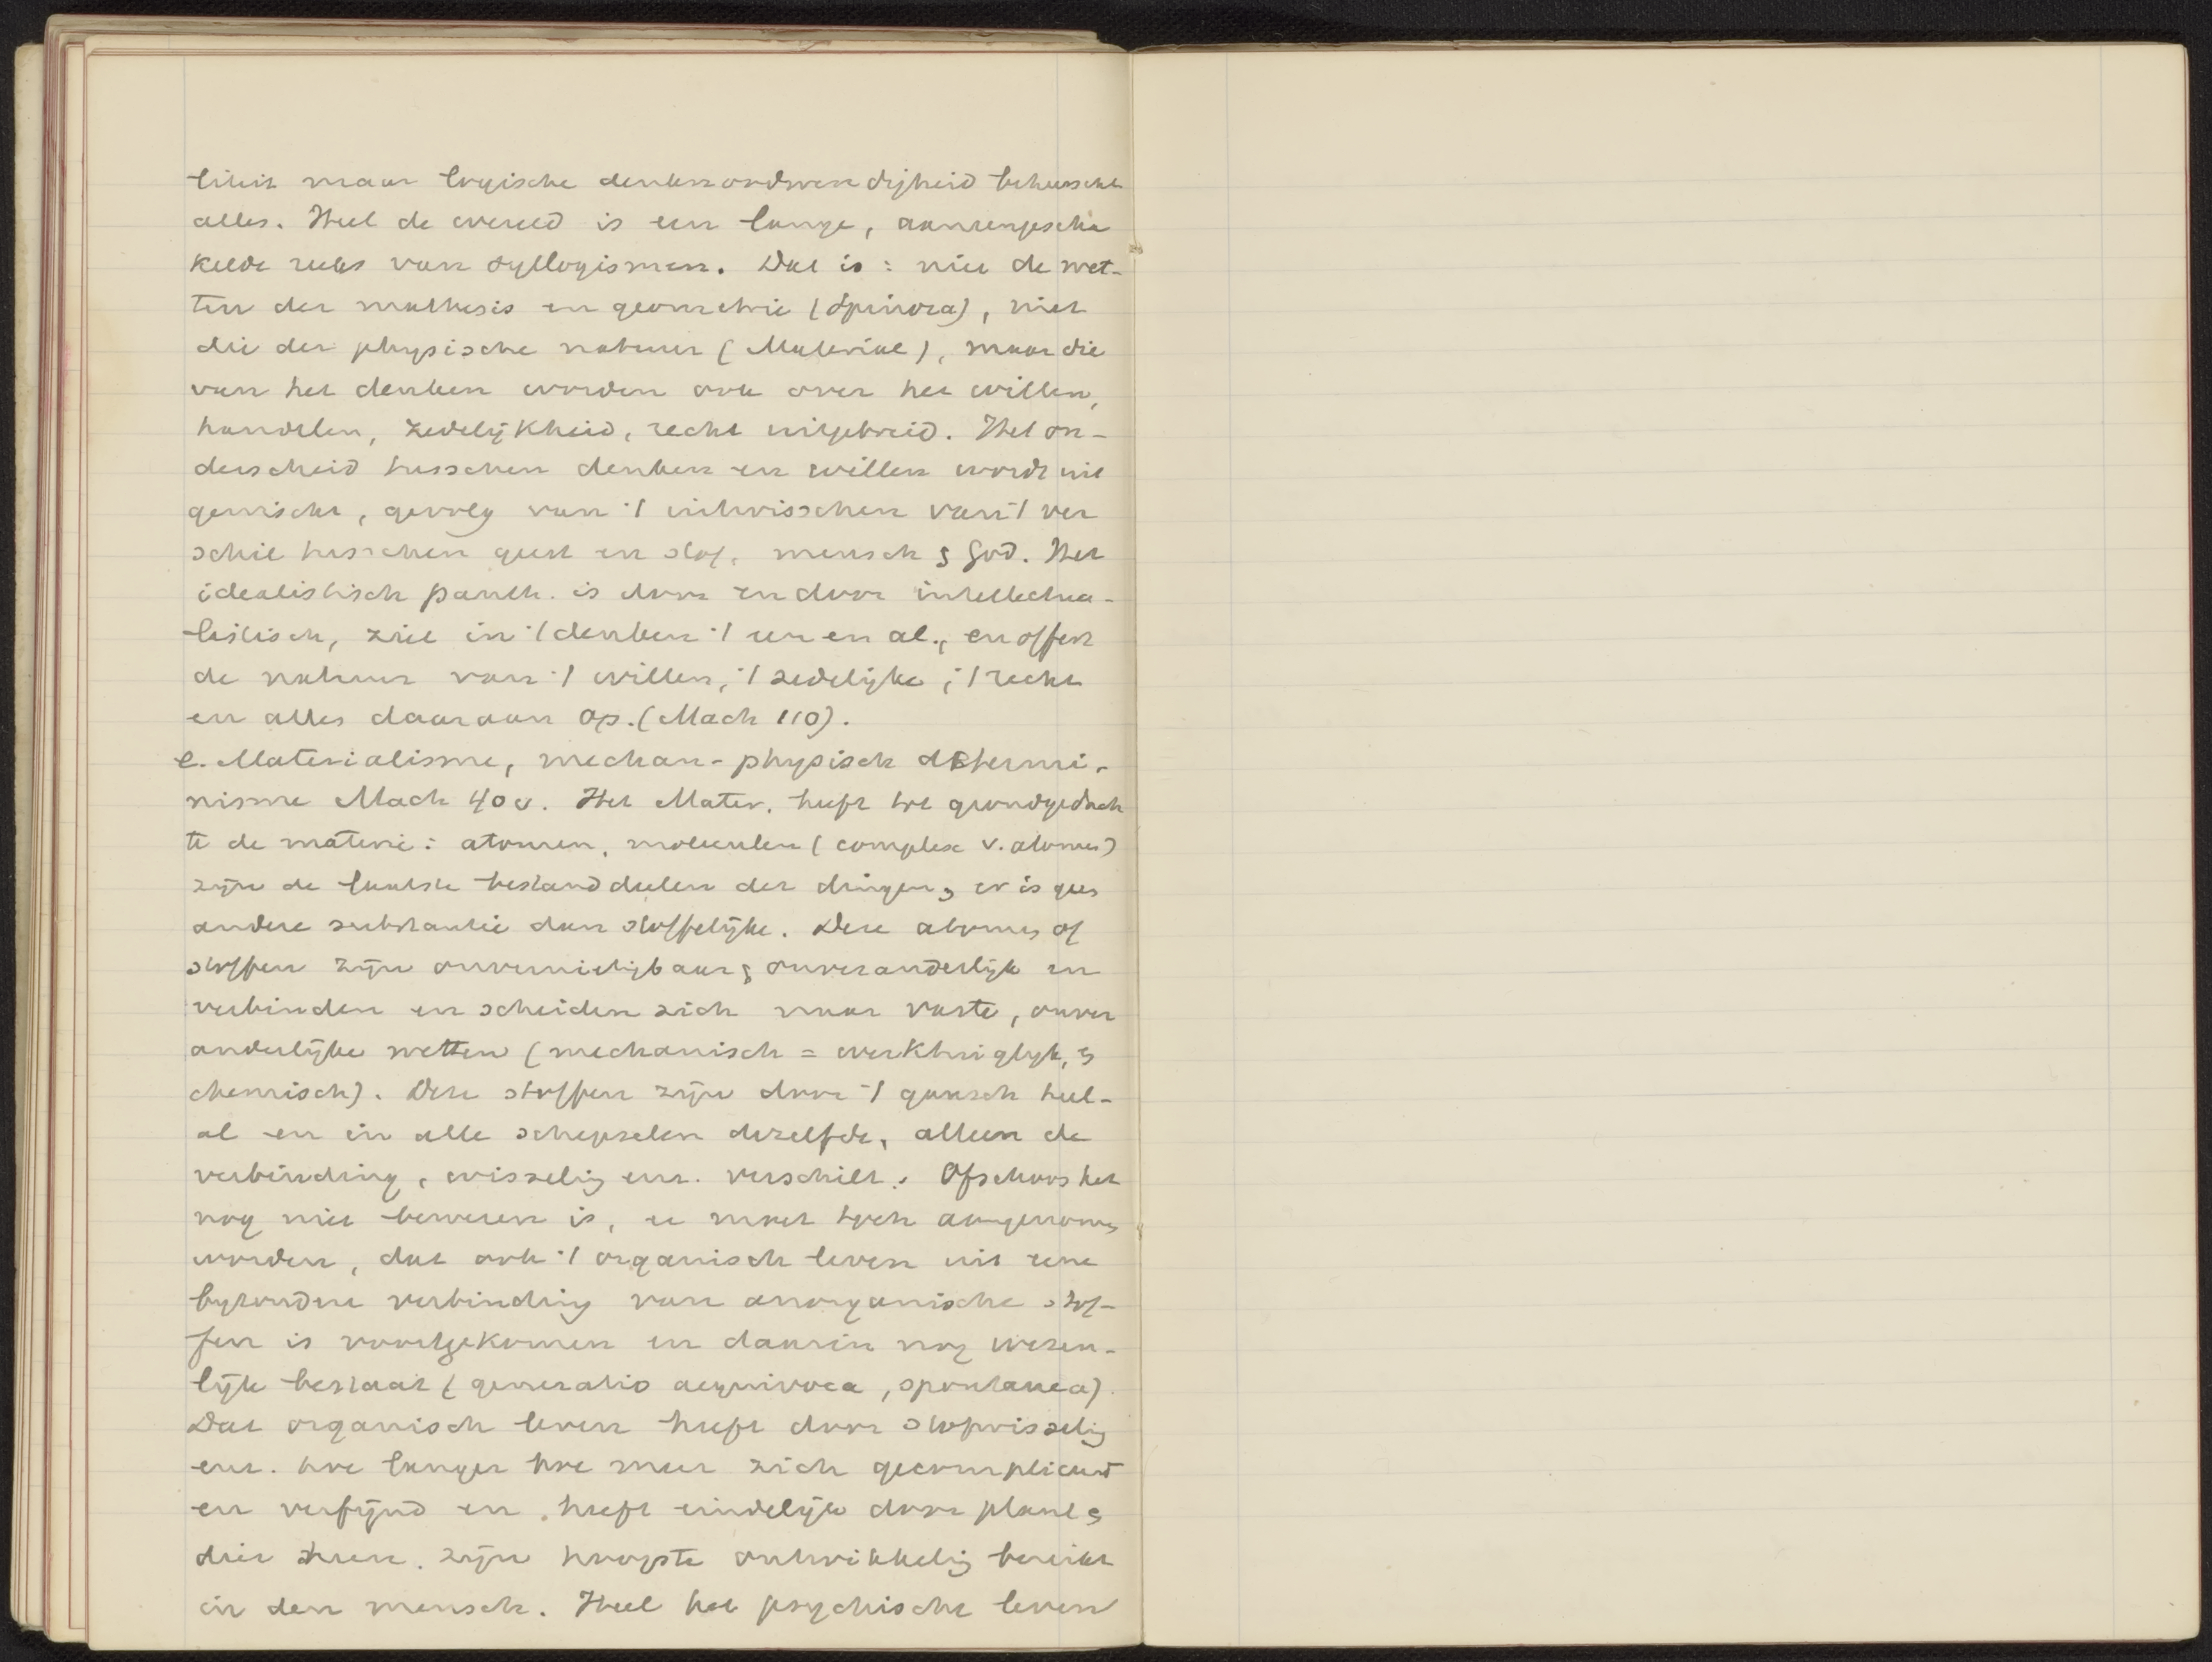 liteit maar logische denknoodwendigheid beheerscht
alles. Heel de wereld is een lange, aaneengescha
kelde reeks van syllogismen. Dat is: niet de wet-
ten der mathesis en geometrie (Spinoza), niet
die der physische natuur (Material), maar die
van het denken worden ook over het willen,
handelen, zedelijkheid, recht uitgebreid. Het on-
derscheid tusschen denken en willen wordt uit
gewischt, gevolg van 't uitwisschen van 't ver
schil tusschen geest en stof, mensch & God. Het
idealistisch panth. is door en door intellectua-
listisch, ziet in 't denken 't een en al, en offert
de natuur van 't willen, 't zedelijke, 't recht
en alles daaraan op. (Mach 110).
e. Materialisme, mechan-physisch determi-
nisme Mach 40 v. Het Mater. heeft tot grondgedach
te de materie: atomen, moleculen (complex v. atomen)
zijn de laatste bestanddeelen der dingen, er is geen
andere substantie dan stoffelijke. Deze atomen of
stoffen zijn onvernietigbaar & onveranderlijk en
verbinden en scheiden zich naar vaste, onver
anderlijke wetten (mechanisch = werktuiglijk, &
chemisch). Deze stoffen zijn door 't gansch heel-
al en in alle schepselen dezelfde, alleen de
verbinding, wisseling enz. verschilt. Ofschoon het
nog niet bewezen is, er moet toch aangenomen
worden, dat ook 't organisch leven uit eene
byzondere verbinding van anorganische stof-
fen is voortgekomen en daarin nog wezen-
lijk bestaat (generatio aequivoca, spontanea).
Dat organisch leven heeft door stofwisseling
enz. hoe langer hoe meer zich gecompliceerd
en verfijnd en heeft eindelijk door plant &
dier heen zijn hoogste ontwikkeling bereikt
in den mensch. Heel het psychische leven